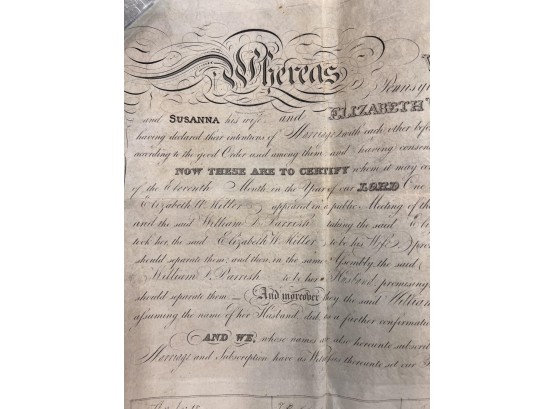 Whereas
Pennsyl
and SUSANNA his wife and ELIZABETH
having declared their intentions of Marriage with each other befo
according to the good Order used among them and having consen
NOW THESE ARE TO CERTIFY when it may co
of the Eleventh Month, in the Year of our LORD One
Elizabeth W. Miller appeared in a public Meeting of th
and the said William D. Parrish taking the said Eli
took her, the said Elizabeth W. Miller to be his Wife, pro
should separate them: and then, in the same Assembly, the said
William D. Parrish to be her Husband, promising
should separate them.— And moreover they, the said William
assuming the name of her Husband, did, as a further confirmati
AND WE, whose names are also hereunto subscri
Marriage and Subscription have as Witnesses thereunto set our